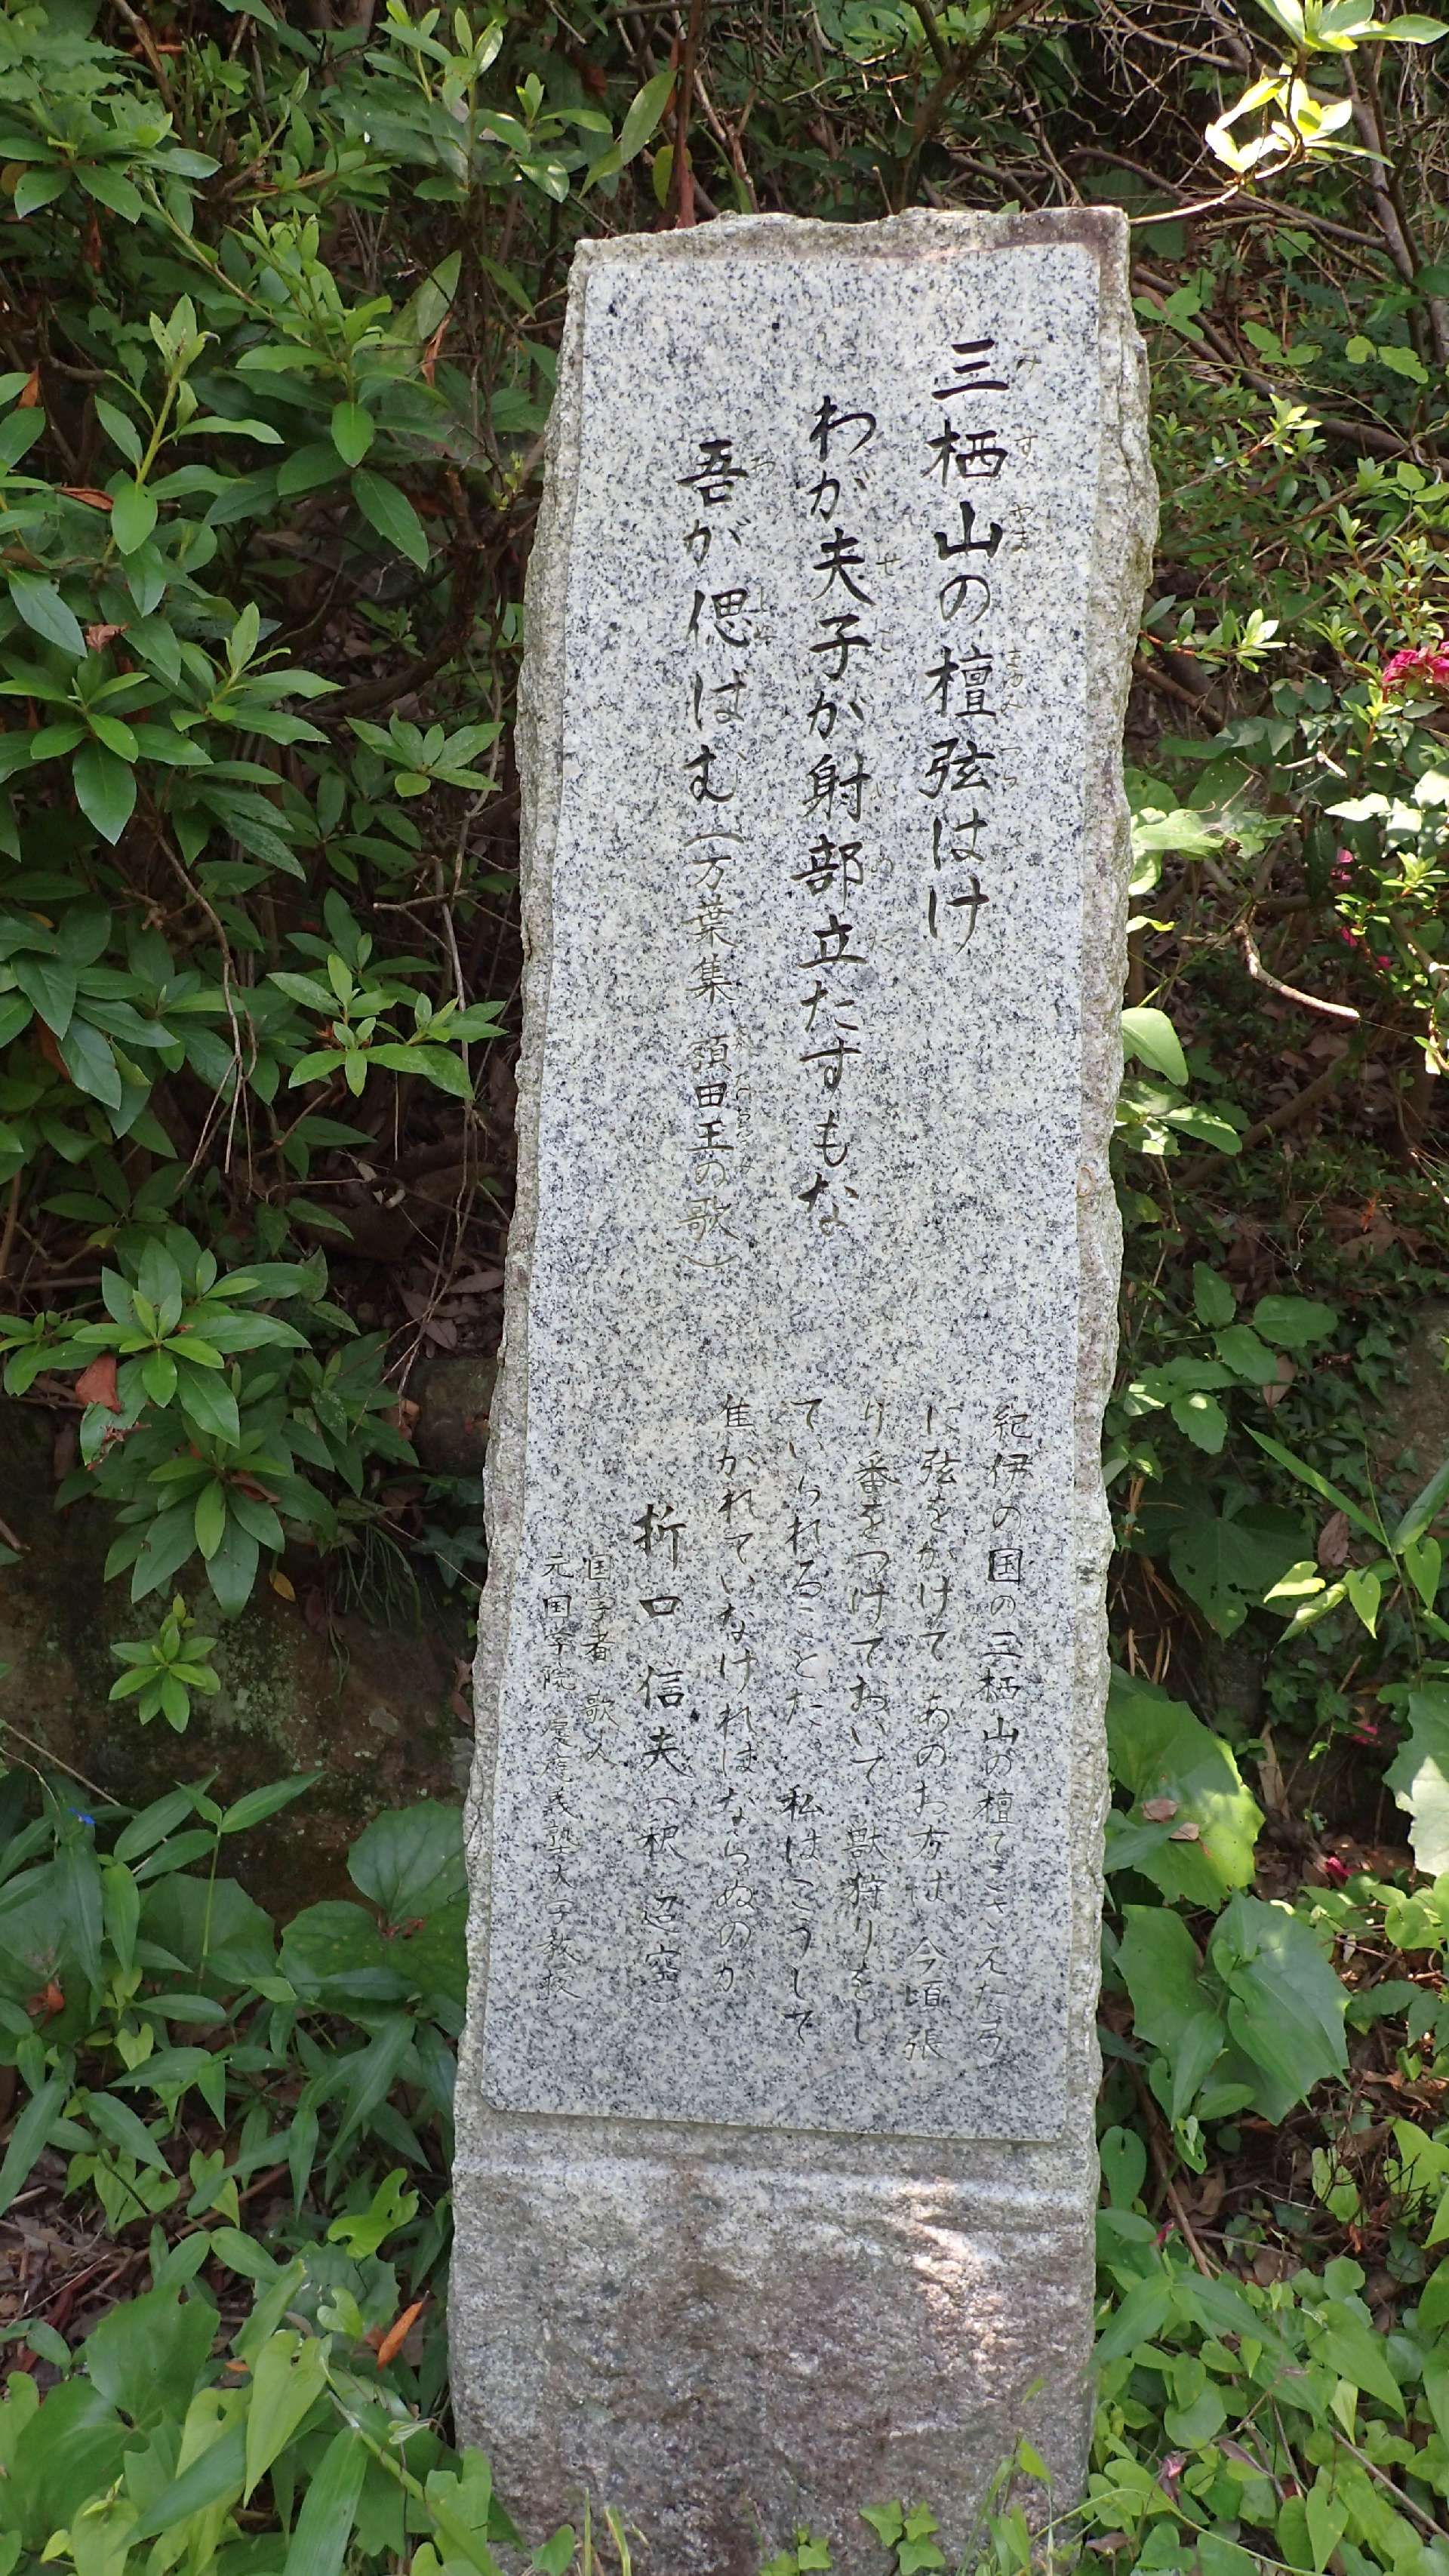 三栖山の檀弦はけ
わが夫子が射部立たすもな
吾が偲はむ(万葉集 額田王の歌)
紀伊の国の三栖山の檀でこさえた弓
に弦をかけて あのお方は 今頃 張
り番をつけておいて 獣狩りをし
ていられることだ 私はこうして
焦がれていなければならぬのか
折口 信夫(釈 迢空)
国学者 歌人
元国学院 慶應義塾大学教授